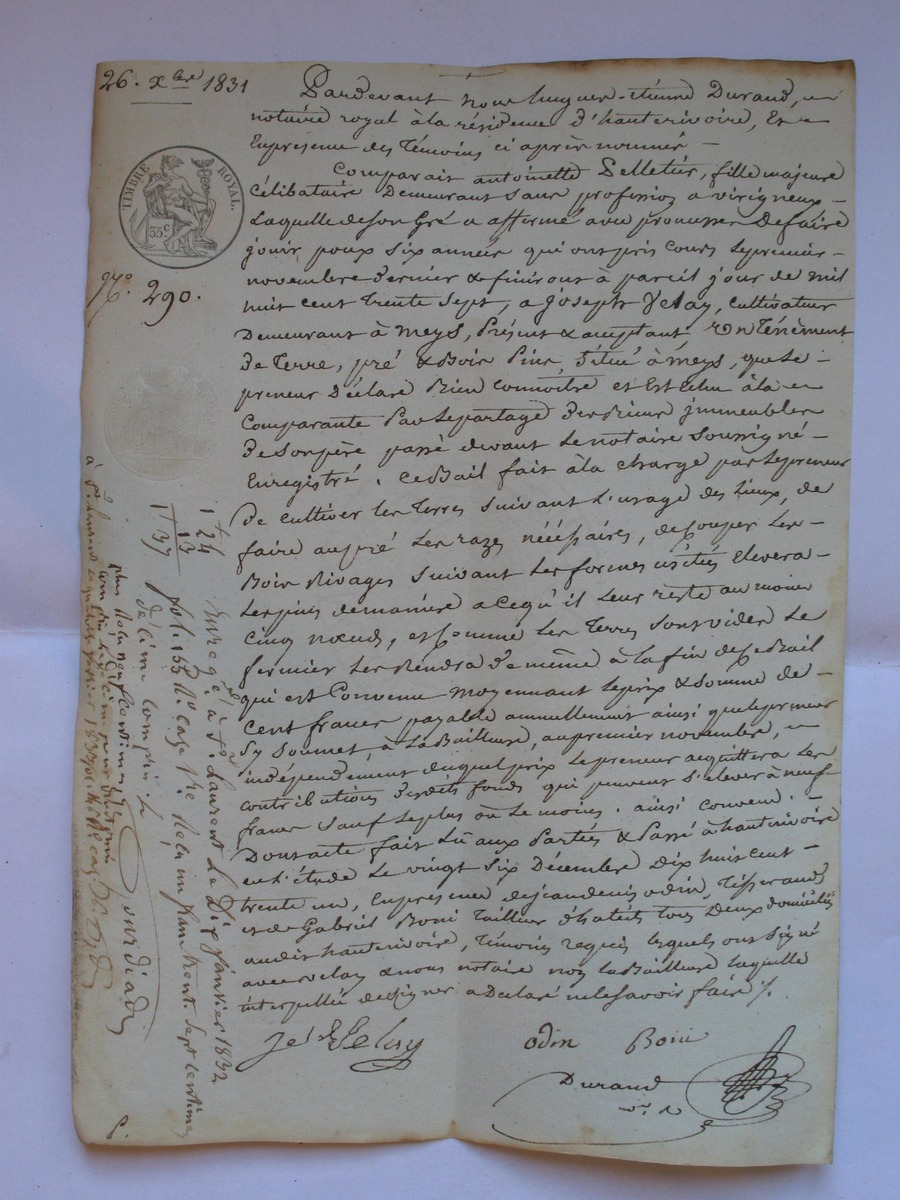 26. Xbre 1831
TIMBRE ROYAL.
35c
No. 290.
Pardevant nous hugues-étienne Durand,
notaire royal à la résidence d'hauterivoire, Et
En présence des Témoins ci après nommés
Comparait antoinette Pelletier, fille majeure
Célibataire Demeurant sans profession a virigneux
Laquelle de son Gré a affermé avec promesse De faire
jouir, pour six années qui ont pris cours le premier
novembre dernier & finiront à pareil jour de mil
huit cent trente sept, a Joseph Velay, cultivateur
Demeurant à Meys, Présent & acceptant, Un Ténement
De Terre, pré & Bois Pins, situé à Meys, que le
preneur Déclare Bien Connoitre et Est échu à la
Comparante Par le partage des Biens immeubles
De son père passé devant le notaire soussigné
Enregistré. Ce Bail fait à la charge par le preneur
De cultiver les Terres suivant l'usage des lieux, de
faire au pré les razes nécéssaires, de couper les
Bois Rivages suivant les formes usitées élevera
les pins de manière a ce qu'il leur reste au moins
Cinq nœuds, et comme les Terres sont vides le
fermier les Rendra De même à la fin de ce Bail
qui est Convenu moyennant le prix & somme de
Cent francs payable annuellement ainsi que le preneur
s'y soumet à la Bailleuse, au premier novembre,
indépendément duquel prix le preneur acquittera les
contributions desdits fonds qui peuvent s'élever à neuf
francs sauf le plus ou le moins. ainsi Convenu.
Dont acte fait Lu aux Parties & Passé à hauterivoire
en l'étude le vingt six Décembre Dix huit cent
trente un, En présence de jean denis odin, Tisserand
et de Gabriel Boni Tailleur d'habits tous Deux domiciliés
audit hauterivoire, Témoins requis lesquels ont signé
avec velay & nous notaire non la Bailleuse laquelle
interpellée de signer a Déclaré ne le savoir faire /.
Jh Velay
odin Boni
Durand
nre
1f 24
13
1f 37
Enregé à St Laurent le Dix janvier 1832
fol. 155 Ro case 1re Reçu un franc trente sept centimes